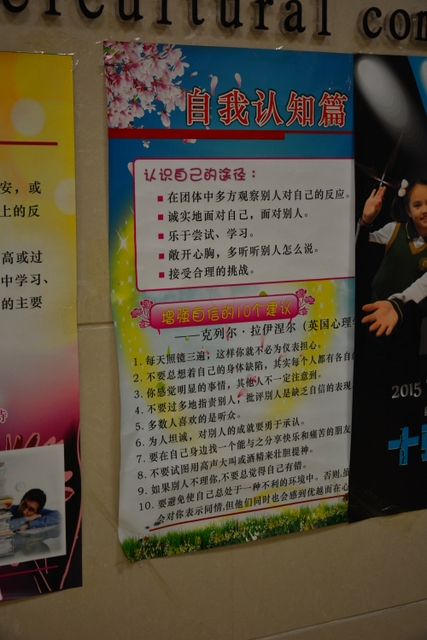 ercultural con
安，或
上的反
高或过
中学习、
的主要
自我认知篇
认识自己的途径：
在团体中多方观察别人对自己的反应。
诚实地面对自己，面对别人。
乐于尝试、学习。
敞开心胸，多听听别人怎么说。
接受合理的挑战。
增强自信的10个建议
——克列尔·拉伊涅尔（英国心理
1. 每天照镜三遍，这样你就不必为仪表担心。
2. 不要总想着自己的身体缺陷，其实每个人都有各自
3. 你感觉明显的事情，其他人不一定注意到。
4. 不要过多地指责别人，批评别人是缺乏自信的表现
5. 多数人喜欢的是听众。
6. 为人坦诚，对别人的成就要勇于承认。
7. 要在自己身边找一个能与之分享快乐和痛苦的朋友
8. 不要试图用高声大叫或酒精来壮胆提神。
9. 如果别人不理你，不要总觉得自己有错。
10. 要避免使自己总处于一种不利的环境中。否则，虽
会对你表示同情，但他们同时也会感到优越而在心
2015
十